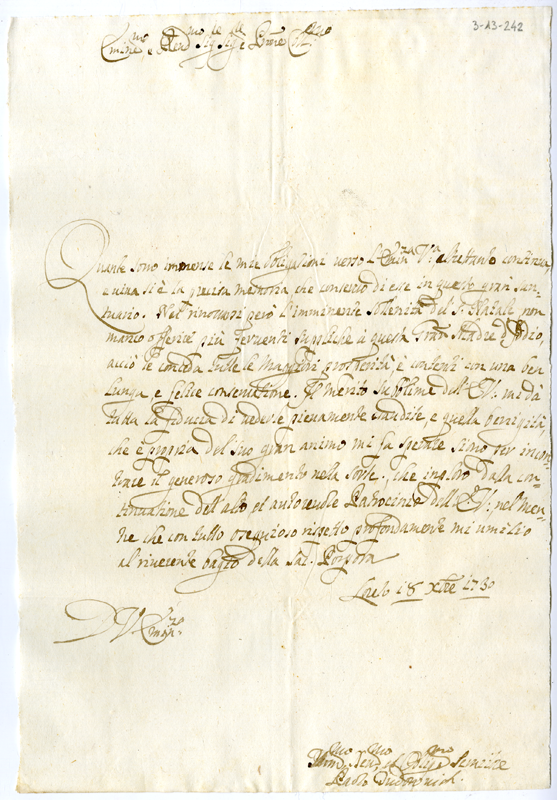 3-13-242
Quante sono immense le mie obligazioni verso l'Emza Va altretanto continua
e viva si è la precisa memoria che conservo di esse in questo gran San-
tuario. Nel rinovarsi però l'imminente solennità del S. Natale non
manco offerire più ferventi suppliche a questa Gran Madre d'Iddio,
acciò le conceda tutte le maggiori prosperità, e contenti con una ben
lunga, e felice conservazione. Il merito sublime dell'EV. mi dà
tutta la fiducia di vederle pienamente esaudite, e quella benignità,
che è propria del suo grand'animo mi fa sperare
il generoso gradimento nella sorte, che imploro dalla con-
tinuazione dell'alto et autorevole Patrocinio dell'EV. nel men-
tre che con tutto ossequioso rispetto profondamente mi umilio
al riverente bagio della Sac. Porpora
Loreto 18 Xbre 1730
D V Emza
Humo Devmo et Obligmo Servitore
Paolo